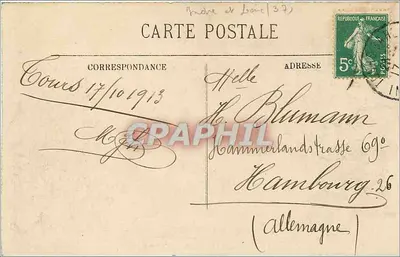 Indre et Loire (37)
CARTE POSTALE
CORRESPONDANCE
ADRESSE
REPUBLIQUE FRANÇAISE
5c
Tours 17/10 1913
Melle
H. Blumann
CPARAMA
Hammerlandstrasse 69°
Hambourg 26
(Allemagne)